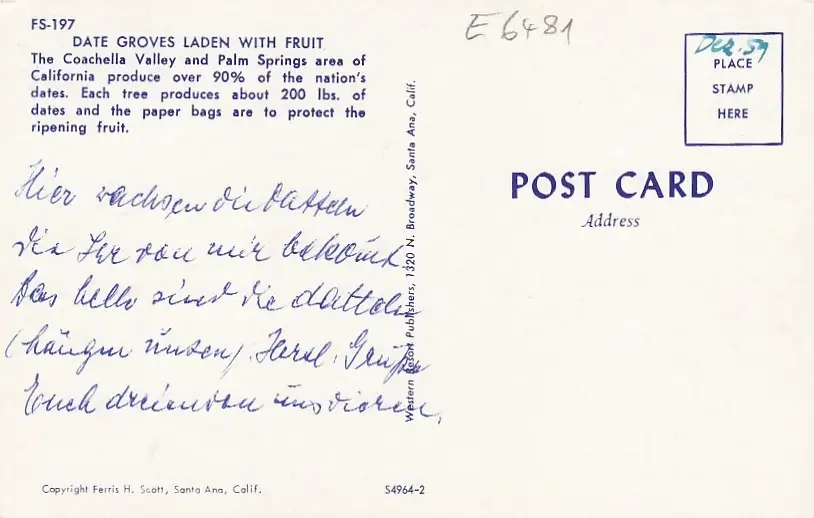 FS-197
DATE GROVES LADEN WITH FRUIT
The Coachella Valley and Palm Springs area of
California produce over 90% of the nation's
dates. Each tree produces about 200 lbs. of
dates and the paper bags are to protect the
ripening fruit.
E 6481
Dez. 59
PLACE
STAMP
HERE
POST CARD
Address
Hier wachsen die Datteln
die Ihr von mir bekomt.
Das helle sind die datteln
(hängen unten) Herzl. Grüße
Euch dreien von uns vieren.
Western Resort Publishers, 1320 N. Broadway, Santa Ana, Calif.
Copyright Ferris H. Scott, Santa Ana, Calif.
S4964-2